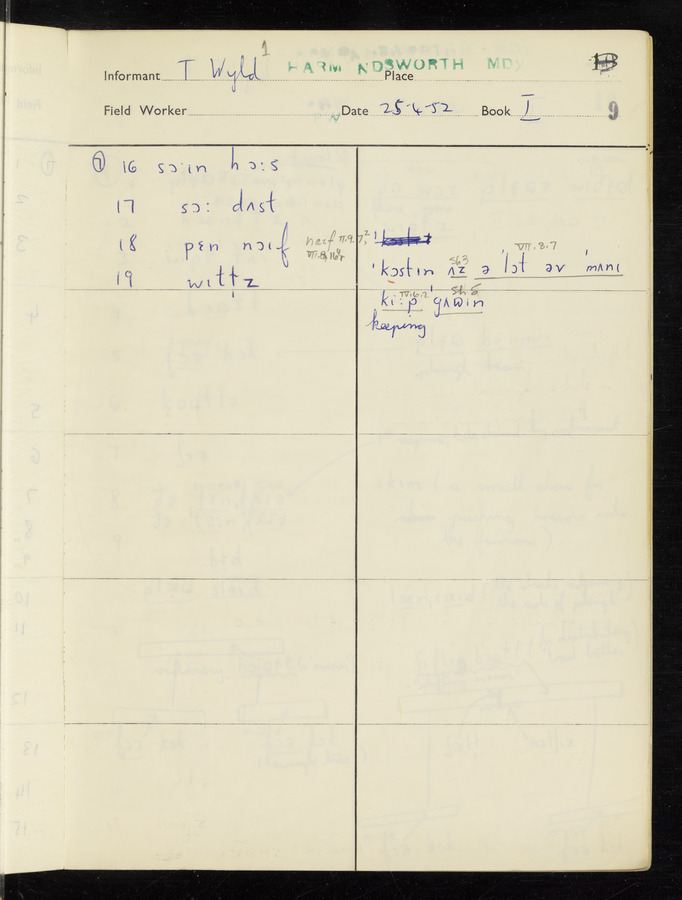 1
Informant T Wyld HARMNDSWORTH MDX Place
Field Worker Date 25·4·52 Book I 9
⑦ 16 sɔːin hɔːs
17 sɔː dʌst
18 pɛn nɔɪf
19 wɪttz
VII.8.7
ˈkɔstɪn ʌz ə ˈlɔt əv ˈmʌnɪ
kiːp ˈgʌwin
keeping